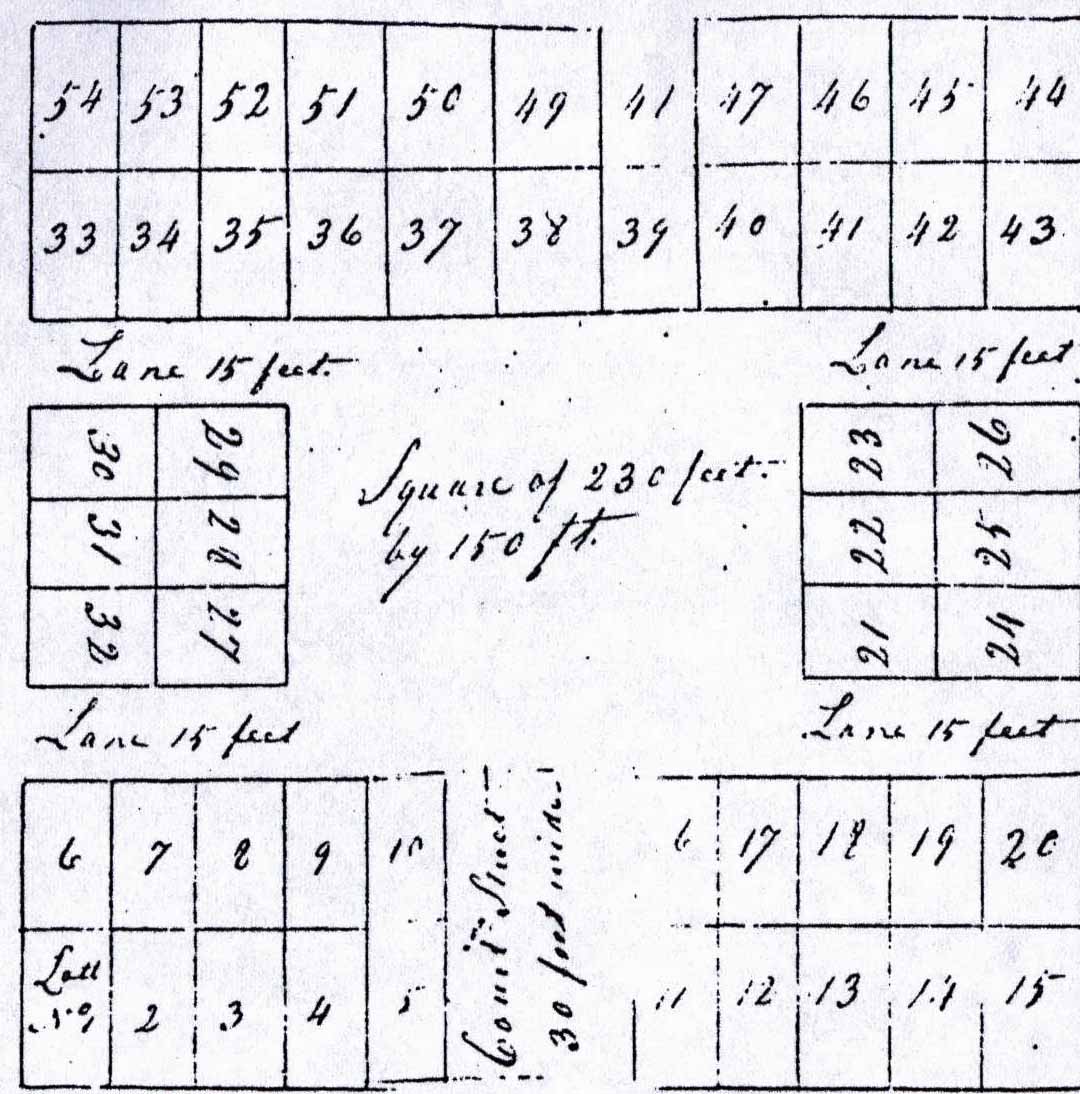 54 53 52 51 50 49 41 47 46 45 44
33 34 35 36 37 38 39 40 41 42 43
Lane 15 feet.
Lane 15 feet
30 29
31 28
32 27
Square of 230 feet.
by 150 ft.
23 26
22 25
21 24
Lane 15 feet
Lane 15 feet
6 7 8 9 10
Lott
No 2 3 4 5
Court Street
30 feet wide
6 17 18 19 20
11 12 13 14 15